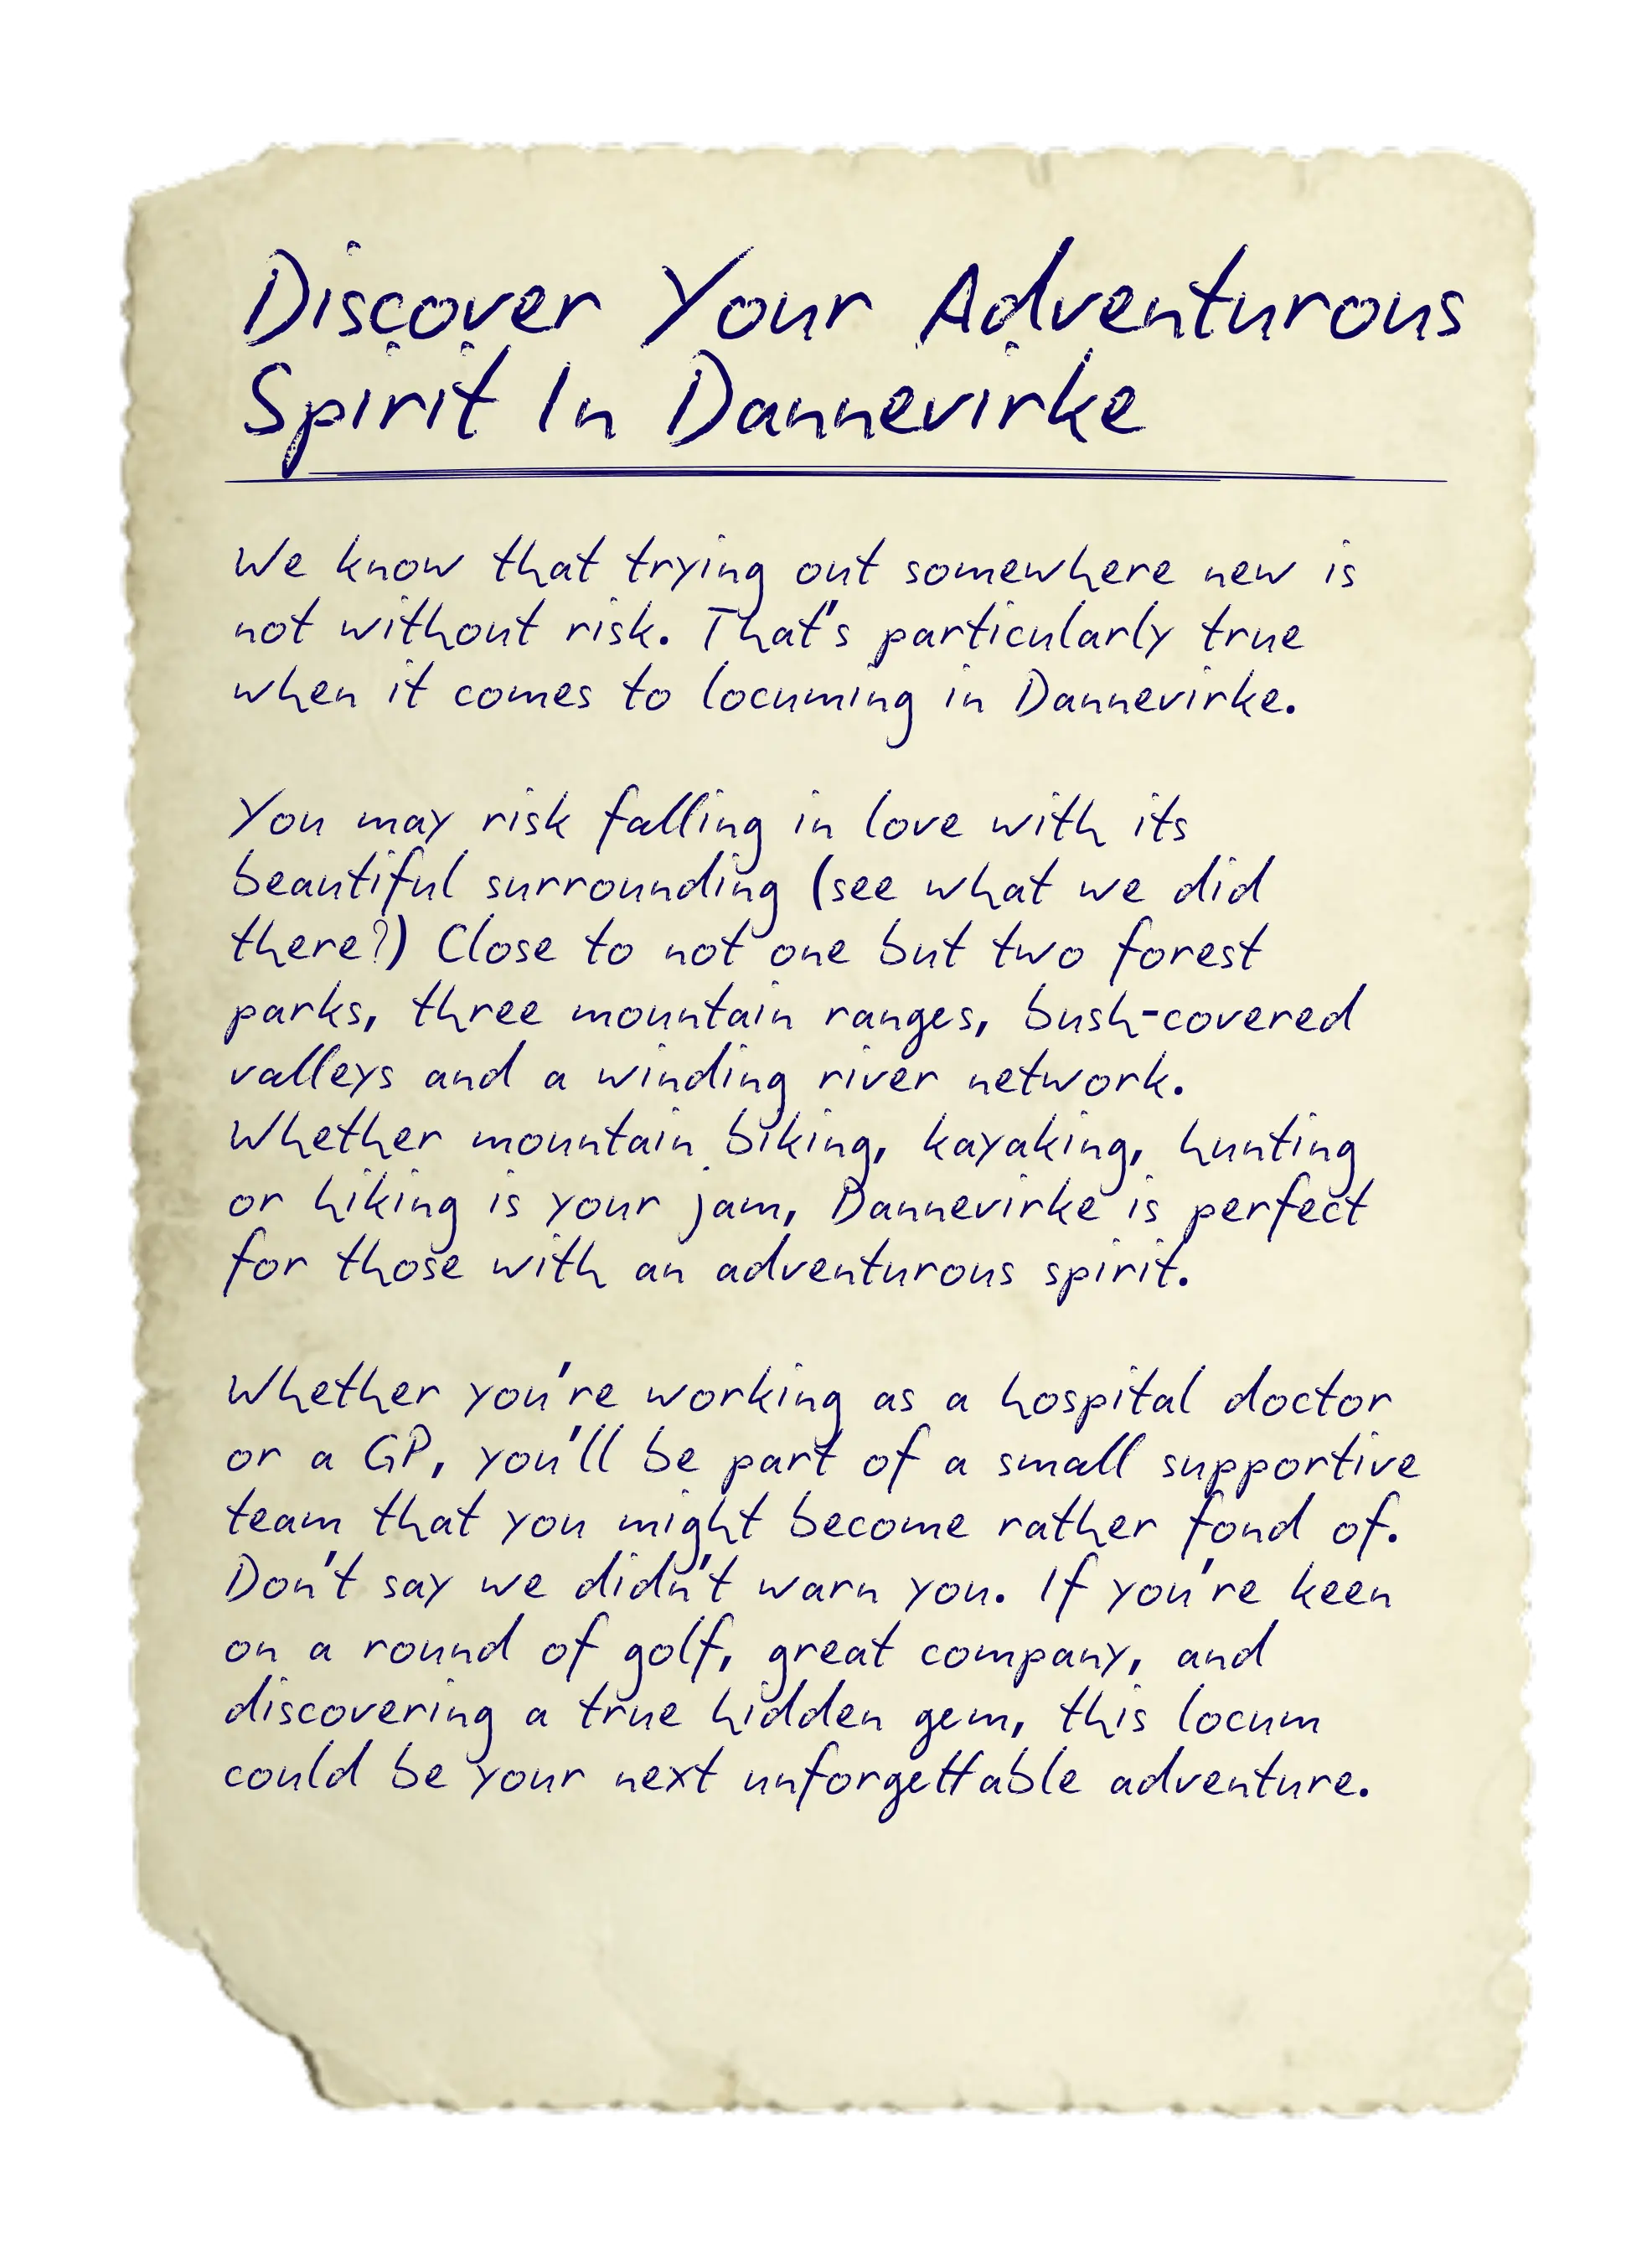 Discover Your Adventurous
Spirit In Dannevirke
We know that trying out somewhere new is
not without risk. That's particularly true
when it comes to locuming in Dannevirke.
You may risk falling in love with its
beautiful surrounding (see what we did
there?) Close to not one but two forest
parks, three mountain ranges, bush-covered
valleys and a winding river network.
Whether mountain biking, kayaking, hunting
or hiking is your jam, Dannevirke is perfect
for those with an adventurous spirit.
Whether you're working as a hospital doctor
or a GP, you'll be part of a small supportive
team that you might become rather fond of.
Don't say we didn't warn you. If you're keen
on a round of golf, great company, and
discovering a true hidden gem, this locum
could be your next unforgettable adventure.